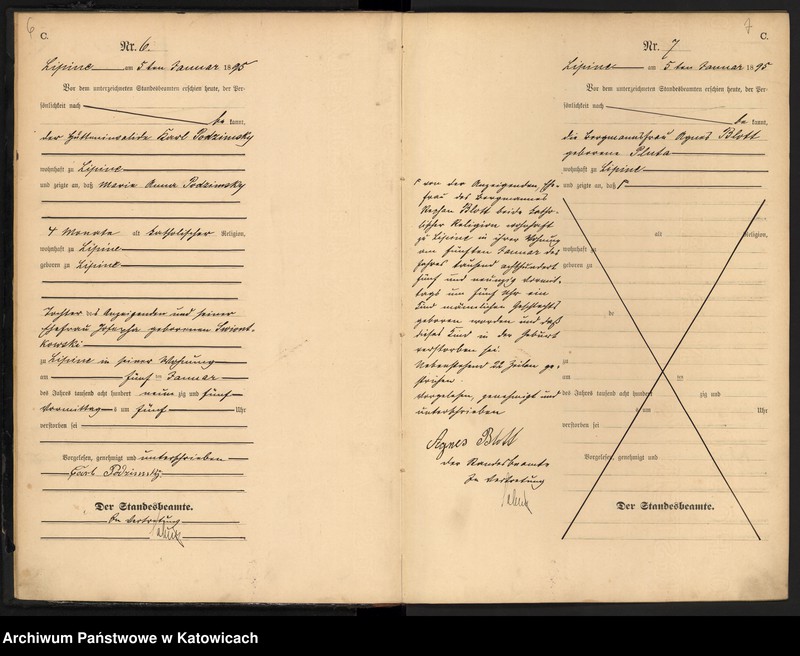 6
C.
Nr. 6.
Lipine am 5 ten Januar 1895
Vor dem unterzeichneten Standesbeamten erschien heute, der Per-
sönlichkeit nach
be kannt,
der Hütteninvalide Karl Podzimsky
wohnhaft zu Lipine
und zeigte an, daß Maria Anna Podzimsky
4 Monate alt katholischer Religion,
wohnhaft zu Lipine
geboren zu Lipine
Tochter des Anzeigenden und seiner
Ehefrau Josepha geborenen Swiont-
kowski
zu Lipine in seiner Wohnung
am fünf ten Januar
des Jahres tausend acht hundert neun zig und fünf
Vormittag s um fünf Uhr
verstorben sei
Vorgelesen, genehmigt und unterschrieben
Karl Podzimsky
Der Standesbeamte.
In Vertretung
7
C.
Nr. 7
Lipine am 5 ten Januar 1895
Vor dem unterzeichneten Standesbeamten erschien heute, der Per-
sönlichkeit nach
be kannt,
die Bergmannsfrau Agnes Blott
geborene Pluta
wohnhaft zu Lipine
und zeigte an, daß
von der Anzeigenden, Ehe-
frau des Bergmannes
Blott beide katho-
lischer Religion wohnhaft
zu Lipine in ihrer Wohnung
am fünften Januar des
Jahres tausend achthundert
fünf und neunzig Vormit-
tags um fünf Uhr ein
Kind männlichen Geschlechts
geboren worden und daß
dieses Kind in der Geburt
verstorben sei.
Nebenstehend 22 Zeilen ge-
strichen.
Vorgelesen, genehmigt und
unterschrieben
Agnes Blott
Der Standesbeamte
In Vertretung
alt Religion,
wohnhaft zu
geboren zu
de
zu
am ten
des Jahres tausend acht hundert zig und
um Uhr
verstorben sei
Vorgelesen, genehmigt und
Der Standesbeamte.
Archiwum Państwowe w Katowicach